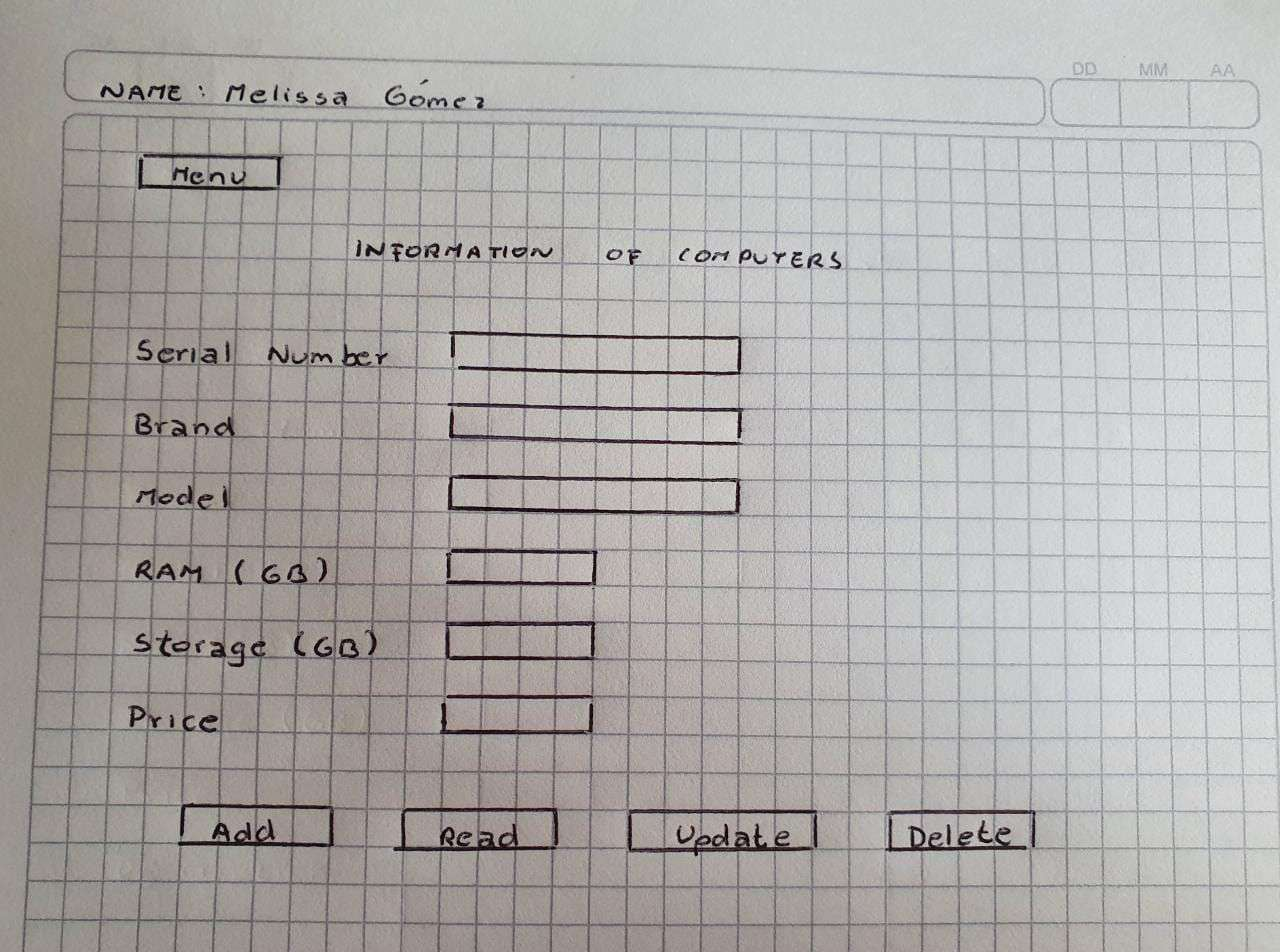 DD MM AA
NAME: Melissa Gómez
Menu
INFORMATION OF COMPUTERS
Serial Number
Brand
Model
RAM (GB)
Storage (GB)
Price
Add Read Update Delete